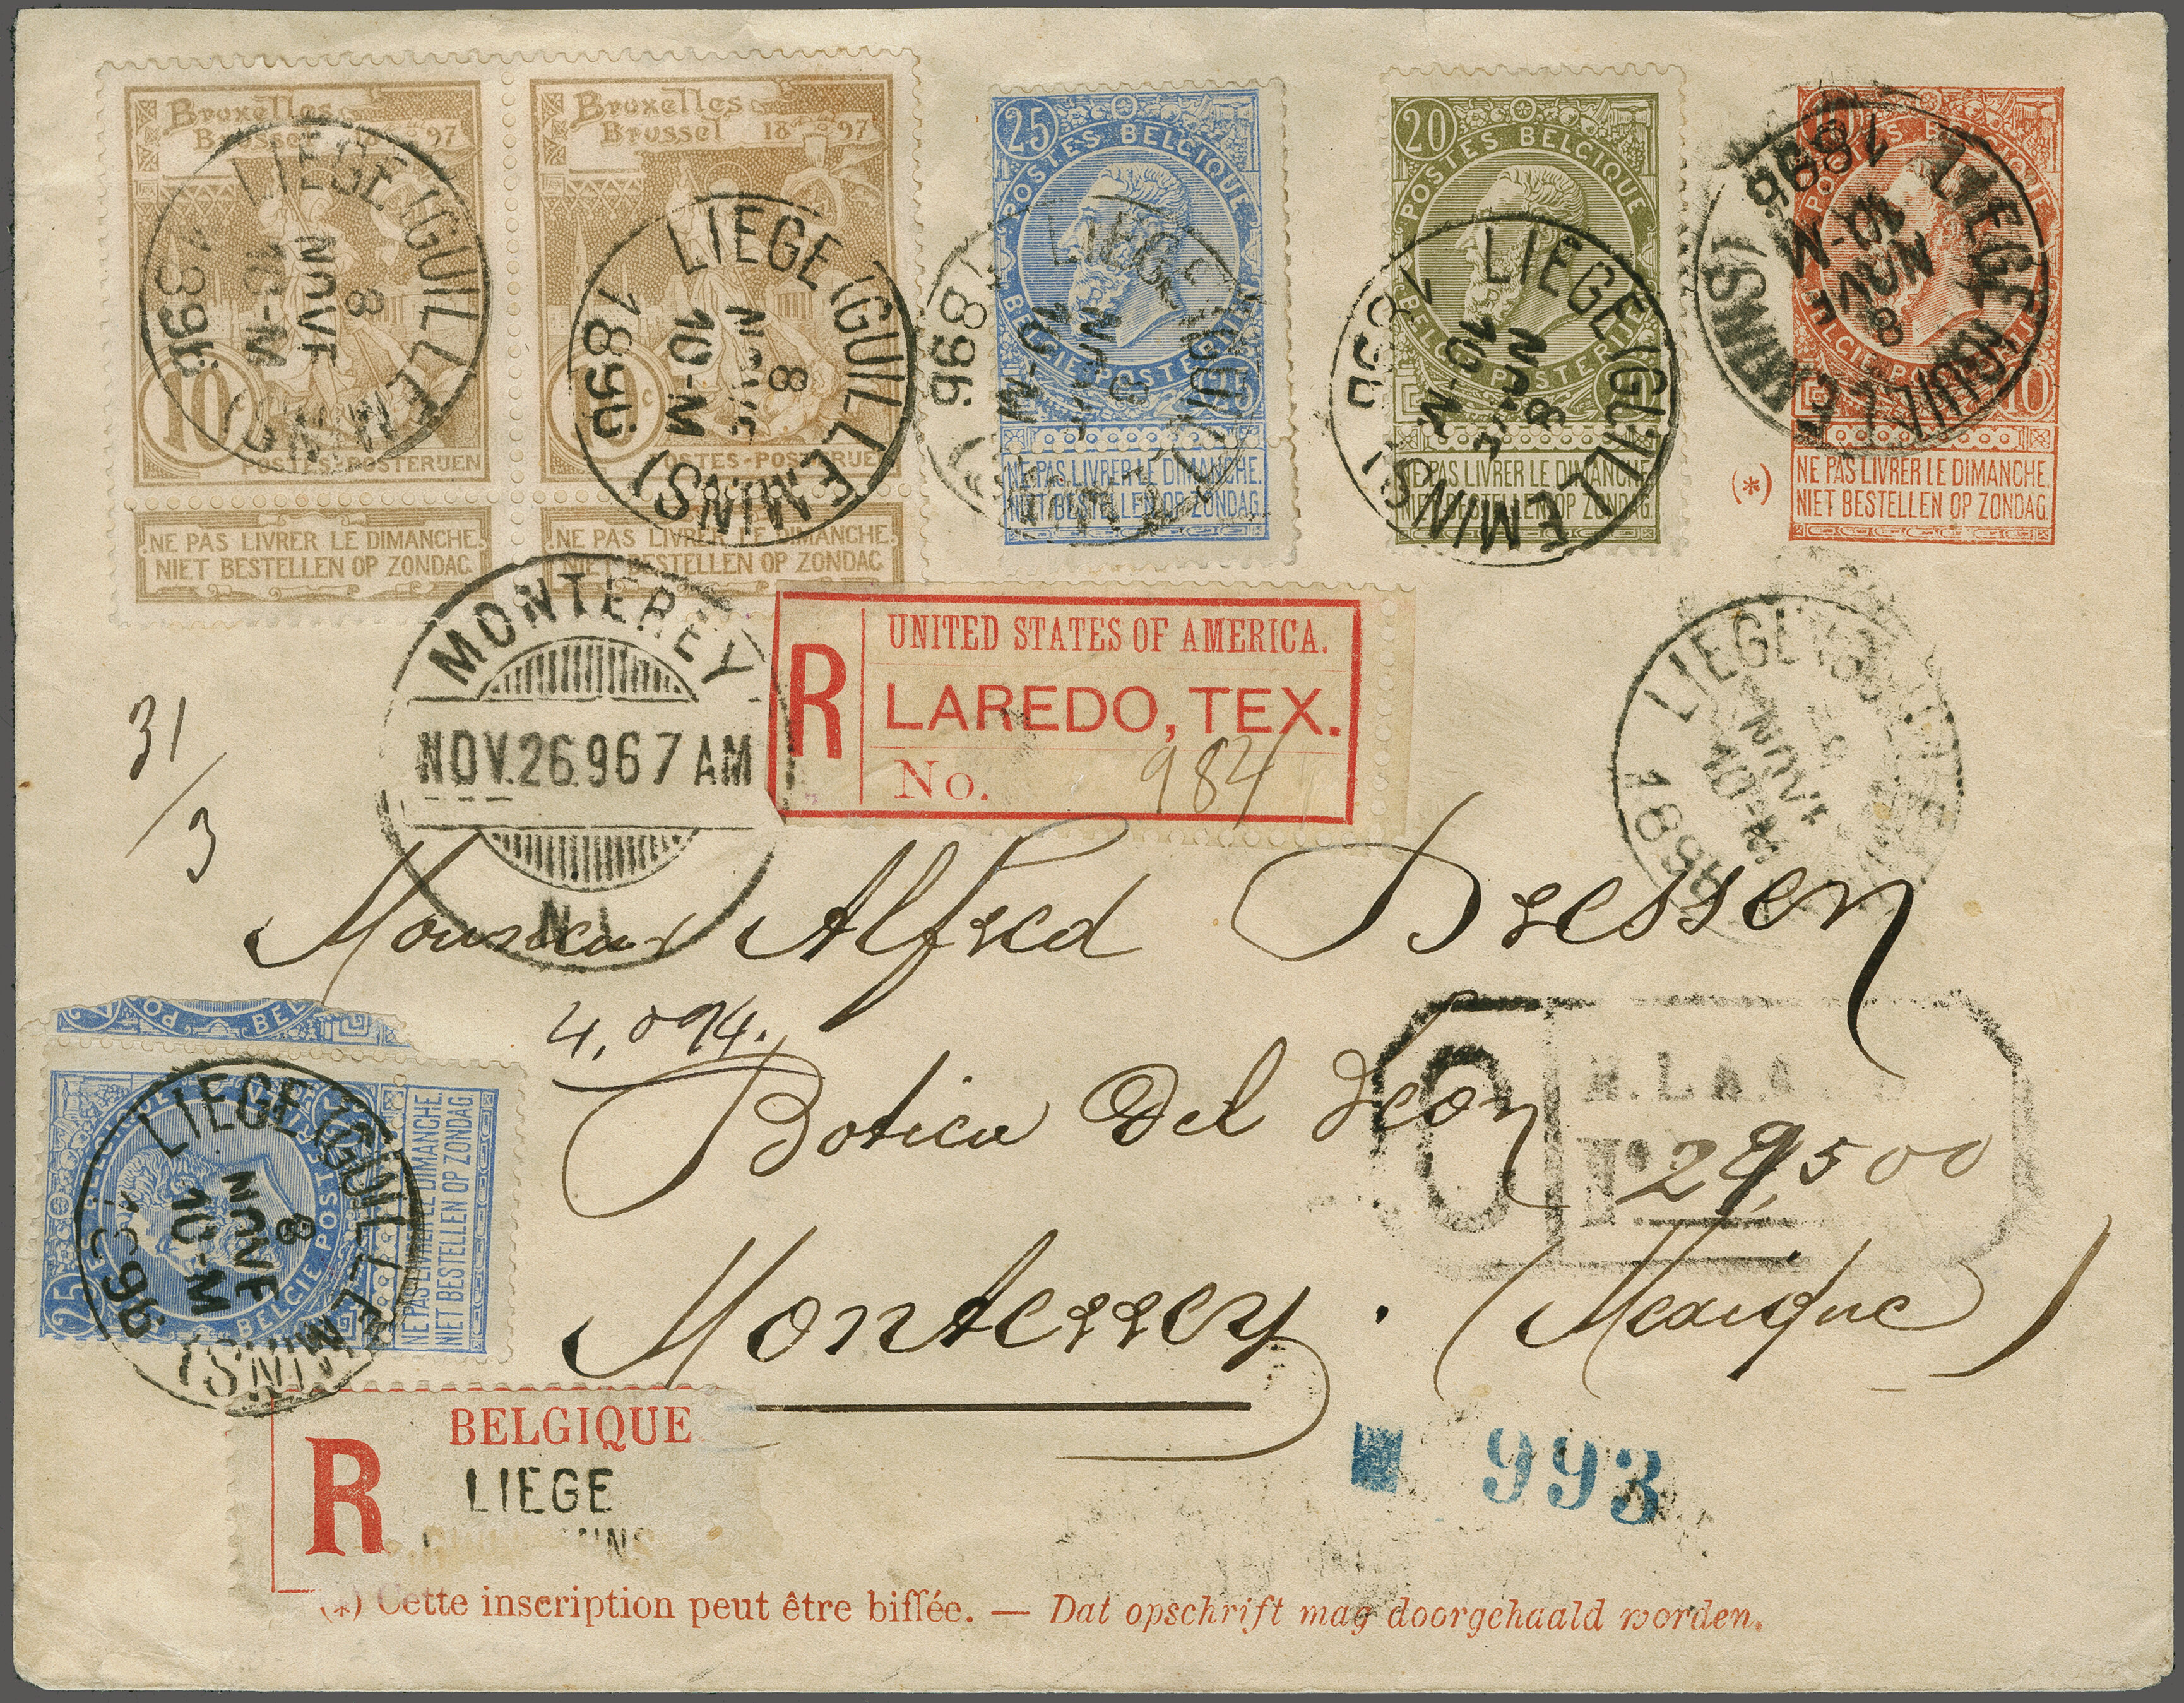 Bruxelles
Brussel 18 97
10c
POSTES-POSTERIJEN
NE PAS LIVRER LE DIMANCHE.
NIET BESTELLEN OP ZONDAG
LIEGE (GUILLEMINS)
8
NOVE
10-M
1896
Bruxelles
Brussel 18 97
POSTES-POSTERIJEN
NE PAS LIVRER LE DIMANCHE.
NIET BESTELLEN OP ZONDAG
LIEGE (GUILLEMINS)
8
NOVE
10-M
1896
25
POSTES BELGIQUE
BELGIE POSTERIJEN
25
NE PAS LIVRER LE DIMANCHE.
NIET BESTELLEN OP ZONDAG.
LIEGE (GUILLEMINS)
8
NOVE
10-M
1896
20
POSTES BELGIQUE
BELGIE POSTERIJEN
NE PAS LIVRER LE DIMANCHE.
NIET BESTELLEN OP ZONDAG.
LIEGE (GUILLEMINS)
8
NOVE
10-M
1896
10
POSTES BELGIQUE
BELGIE POSTERIJEN
10
(*)
NE PAS LIVRER LE DIMANCHE.
NIET BESTELLEN OP ZONDAG.
LIEGE (GUILLEMINS)
8
NOVE
10-M
1896
MONTEREY
NOV.26.96 7 AM
N.L.
R
UNITED STATES OF AMERICA.
LAREDO, TEX.
No. 984
LIEGE
NOVE
10-M
189
31/3
Monsieur Alfred Dressen
4,094.
Botica del Leon
29500
Monterrey. (Mexique)
25
POSTES BELGIQUE
BELGIE POSTERIJEN
NE PAS LIVRER LE DIMANCHE.
NIET BESTELLEN OP ZONDAG.
LIEGE (GUILLEMINS)
8
NOVE
10-M
96
R
BELGIQUE
LIEGE
993
(*) Cette inscription peut être biffée. — Dat opschrift mag doorgehaald worden.